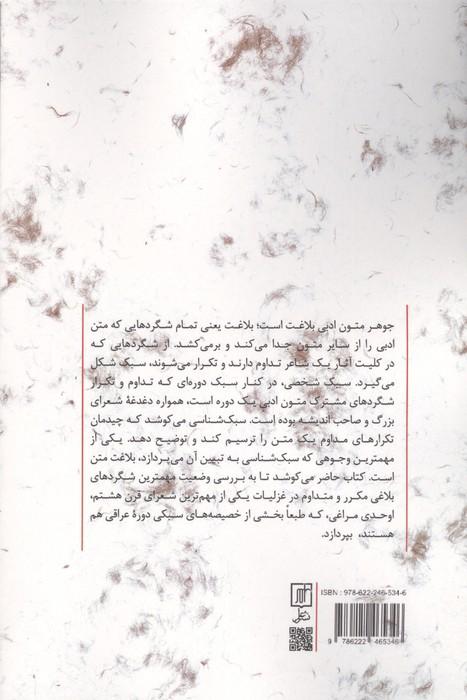 جوهر متون ادبی بلاغت است؛ بلاغت یعنی تمام شگردهایی که متن
ادبی را از سایر متون جدا می‌کند و برمی‌کشد. از شگردهایی که
در کلیت آثار یک شاعر تداوم دارند و تکرار می‌شوند، سبک شکل
می‌گیرد. سبک شخصی، در کنار سبک دوره‌ای که تداوم و تکرار
شگردهای مشترک متون ادبی یک دوره است، همواره دغدغهٔ شعرای
بزرگ و صاحب اندیشه بوده است. سبک‌شناسی می‌کوشد که چیدمان
تکرارهای مداوم یک متن را ترسیم کند و توضیح دهد. یکی از
مهمترین وجوهی که سبک‌شناسی به تبیین آن می‌پردازد، بلاغت متن
است. کتاب حاضر می‌کوشد تا به بررسی وضعیت مهمترین شگردهای
بلاغی مکرر و متداوم در غزلیات یکی از مهم‌ترین شعرای قرن هشتم،
اوحدی مراغی، که طبعاً بخشی از خصیصه‌های سبکی دورهٔ عراقی هم
هستند، بپردازد.
ISBN : 978-622-246-534-6
9 786222 465346